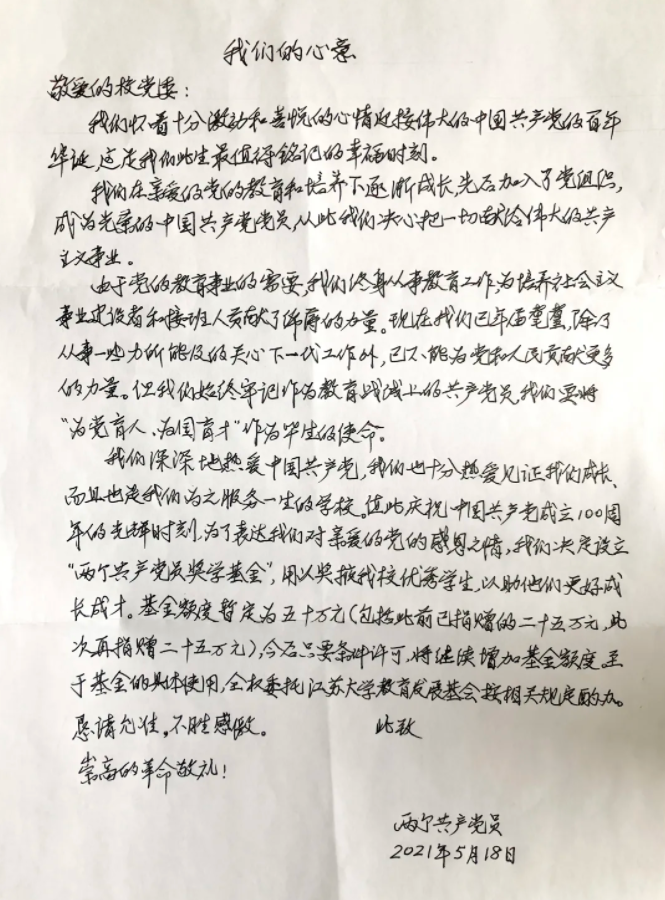 我们的心意
敬爱的校党委：
我们怀着十分激动和喜悦的心情迎接伟大的中国共产党的百年
华诞，这是我们此生最值得铭记的幸福时刻。
我们在亲爱的党的教育和培养下逐渐成长，先后加入了党组织，
成为光荣的中国共产党党员，从此我们决心把一切献给伟大的共产
主义事业。
由于党的教育事业的需要，我们终身从事教育工作，为培养社会主义
事业建设者和接班人贡献了绵薄的力量。现在我们已年届耄耋，除了
从事一些力所能及的关心下一代工作外，已不能为党和人民贡献更多
的力量。但我们始终牢记作为教育战线上的共产党员，我们要将
“为党育人、为国育才”作为毕生的使命。
我们深深地热爱中国共产党，我们也十分热爱见证我们成长、
而且也是我们为之服务一生的学校。值此庆祝中国共产党成立100周
年的光辉时刻，为了表达我们对亲爱的党的感恩之情，我们决定设立
“两个共产党员奖学基金”，用以奖掖我校优秀学生，以助他们更好成
长成才。基金额度暂定为五十万元（包括此前已捐赠的二十五万元，此
次再捐赠二十五万元），今后只要条件许可，将继续增加基金额度。至
于基金的具体使用，全权委托江苏大学教育发展基会按相关规定酌办。
恳请允准。不胜感激。 此致
崇高的革命敬礼！
两个共产党员
2021年5月18日